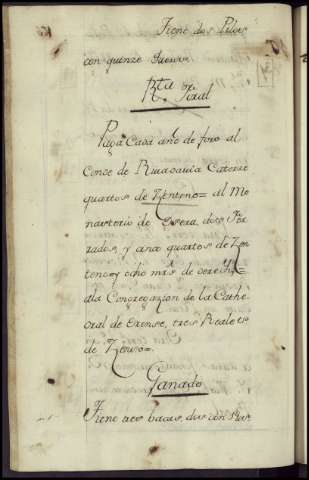 Tiene dos Pibies
con quinze
Rta Rl
Paga Cada año de foro al
Conde de Ruadavia Catorze
quartos de Zenteno= al Mo
nasterio de Osera, dos Fe
rrados, y una quartos de Zen
teno, y ocho mrs de derechu
ala Congregazion de la Cathe
dral de Orense, tres Reales
de Zenso=
Ganado
Tiene tres bacas, dos con sus